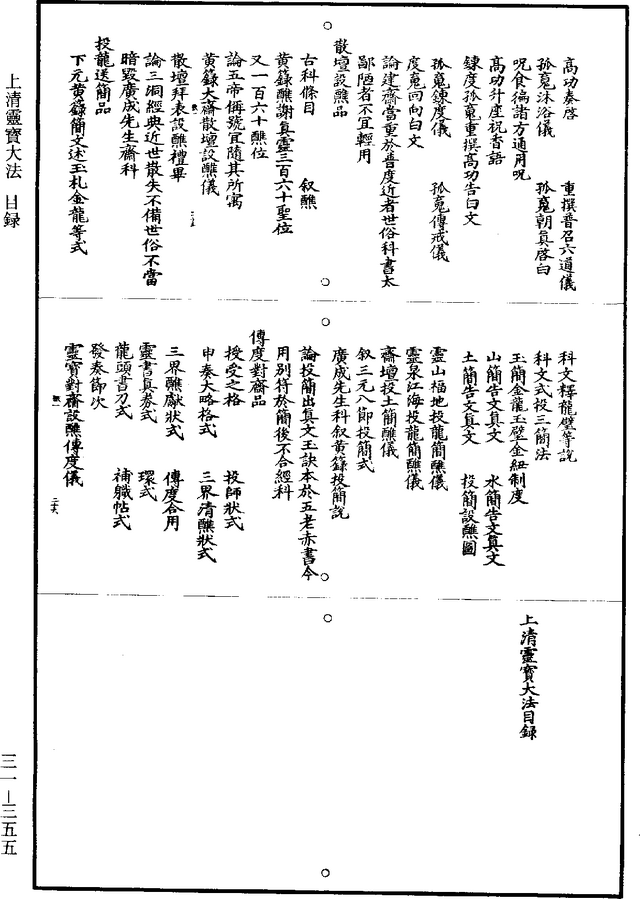 高功奏啓　重撰普召六道儀
孤䰟沐浴儀　孤䰟朝真啓白
呪食徧諸方通用呪
高功升座祝香語
鍊度孤䰟重撰高功告白文
孤䰟鍊度儀　孤䰟傳戒儀
度䰟回向白文
論建齋當重於普度近者世俗科書太
鄙陋者不宜輕用
散壇設醮品
古科條目　叙醮
黃籙醮謝真靈三百六十聖位
又一百六十醮位
論五帝稱號宜隨其所寓
黃籙大齋散壇設醮儀
散壇拜表設醮禮畢
論三洞經典近世散失不備世俗不當
暗毀廣成先生齋科
投龍送簡品
下元黃籙簡文述玉札金龍等式
科文釋龍璧等說
科文式投三簡法
玉簡金龍玉璧金紐制度
山簡告文真文　水簡告文真文
土簡告文真文　投簡設醮圖
靈山福地投龍簡醮儀
靈泉江海投龍簡醮儀
齋壇投土簡醮儀
叙三元八節投簡式
廣成先生科叙黃籙投簡說
論投簡出真文玉訣本於五老赤書今
用別符於簡後不合經科
傳度對齋品
授受之格　投師狀式
申奏大略格式　三界清醮狀式
三界醮獻狀式　傳度合用
靈書真券式　環式
龍頭書刀式　補職帖式
發奏節次
靈寶對齋設醮傳度儀
上清靈寶大法目録
上清靈寶大法　目録
三一－三五五